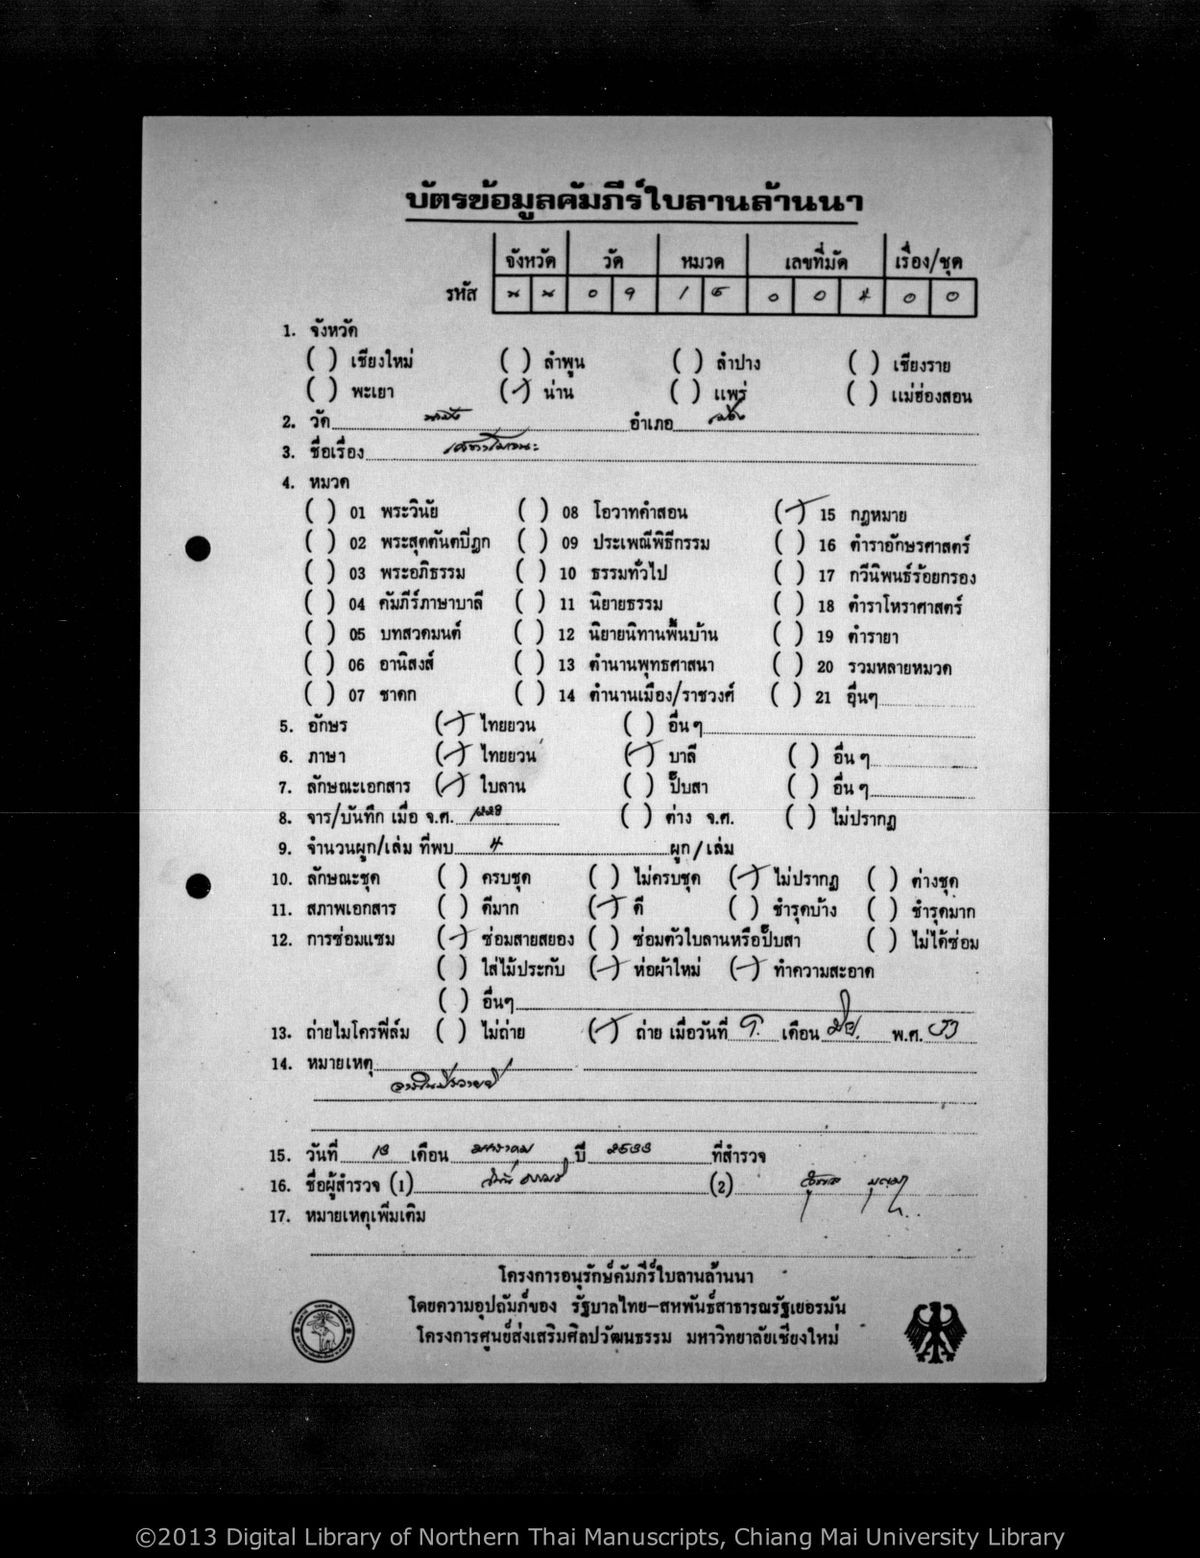 บัตรข้อมูลคัมภีร์ใบลานล้านนา
จังหวัด วัด หมวด เลขที่มัด เรื่อง/ชุด
รหัส น น 0 9 1 5 0 0 4 0 0
1. จังหวัด
( ) เชียงใหม่ ( ) ลำพูน ( ) ลำปาง ( ) เชียงราย
( ) พะเยา (✓) น่าน ( ) แพร่ ( ) แม่ฮ่องสอน
2. วัด อำเภอ เมือง
3. ชื่อเรื่อง
4. หมวด
( ) 01 พระวินัย ( ) 08 โอวาทคำสอน (✓) 15 กฎหมาย
( ) 02 พระสุตตันตปิฎก ( ) 09 ประเพณีพิธีกรรม ( ) 16 ตำราอักษรศาสตร์
( ) 03 พระอภิธรรม ( ) 10 ธรรมทั่วไป ( ) 17 กวีนิพนธ์ร้อยกรอง
( ) 04 คัมภีร์ภาษาบาลี ( ) 11 นิยายธรรม ( ) 18 ตำราโหราศาสตร์
( ) 05 บทสวดมนต์ ( ) 12 นิยายนิทานพื้นบ้าน ( ) 19 ตำรายา
( ) 06 อานิสงส์ ( ) 13 ตำนานพุทธศาสนา ( ) 20 รวมหลายหมวด
( ) 07 ชาดก ( ) 14 ตำนานเมือง/ราชวงศ์ ( ) 21 อื่นๆ
5. อักษร (✓) ไทยยวน ( ) อื่นๆ
6. ภาษา (✓) ไทยยวน (✓) บาลี ( ) อื่นๆ
7. ลักษณะเอกสาร (✓) ใบลาน ( ) ปั๊บสา ( ) อื่นๆ
8. จาร/บันทึก เมื่อ จ.ศ. ( ) ต่าง จ.ศ. ( ) ไม่ปรากฏ
9. จำนวนผูก/เล่ม ที่พบ 4 ผูก/เล่ม
10. ลักษณะชุด ( ) ครบชุด ( ) ไม่ครบชุด (✓) ไม่ปรากฏ ( ) ต่างชุด
11. สภาพเอกสาร ( ) ดีมาก (✓) ดี ( ) ชำรุดบ้าง ( ) ชำรุดมาก
12. การซ่อมแซม (✓) ซ่อมสายสยอง ( ) ซ่อมตัวใบลานหรือปั๊บสา ( ) ไม่ได้ซ่อม
( ) ใส่ไม้ประกับ (✓) ห่อผ้าใหม่ (✓) ทำความสะอาด
( ) อื่นๆ
13. ถ่ายไมโครฟิล์ม ( ) ไม่ถ่าย (✓) ถ่าย เมื่อวันที่ เดือน พ.ศ.
14. หมายเหตุ
15. วันที่ 13 เดือน มกราคม ปี 2533 ที่สำรวจ
16. ชื่อผู้สำรวจ (1) (2)
17. หมายเหตุเพิ่มเติม
โครงการอนุรักษ์คัมภีร์ใบลานล้านนา
โดยความอุปถัมภ์ของ รัฐบาลไทย-สหพันธ์สาธารณรัฐเยอรมัน
โครงการศูนย์ส่งเสริมศิลปวัฒนธรรม มหาวิทยาลัยเชียงใหม่
©2013 Digital Library of Northern Thai Manuscripts, Chiang Mai University Library